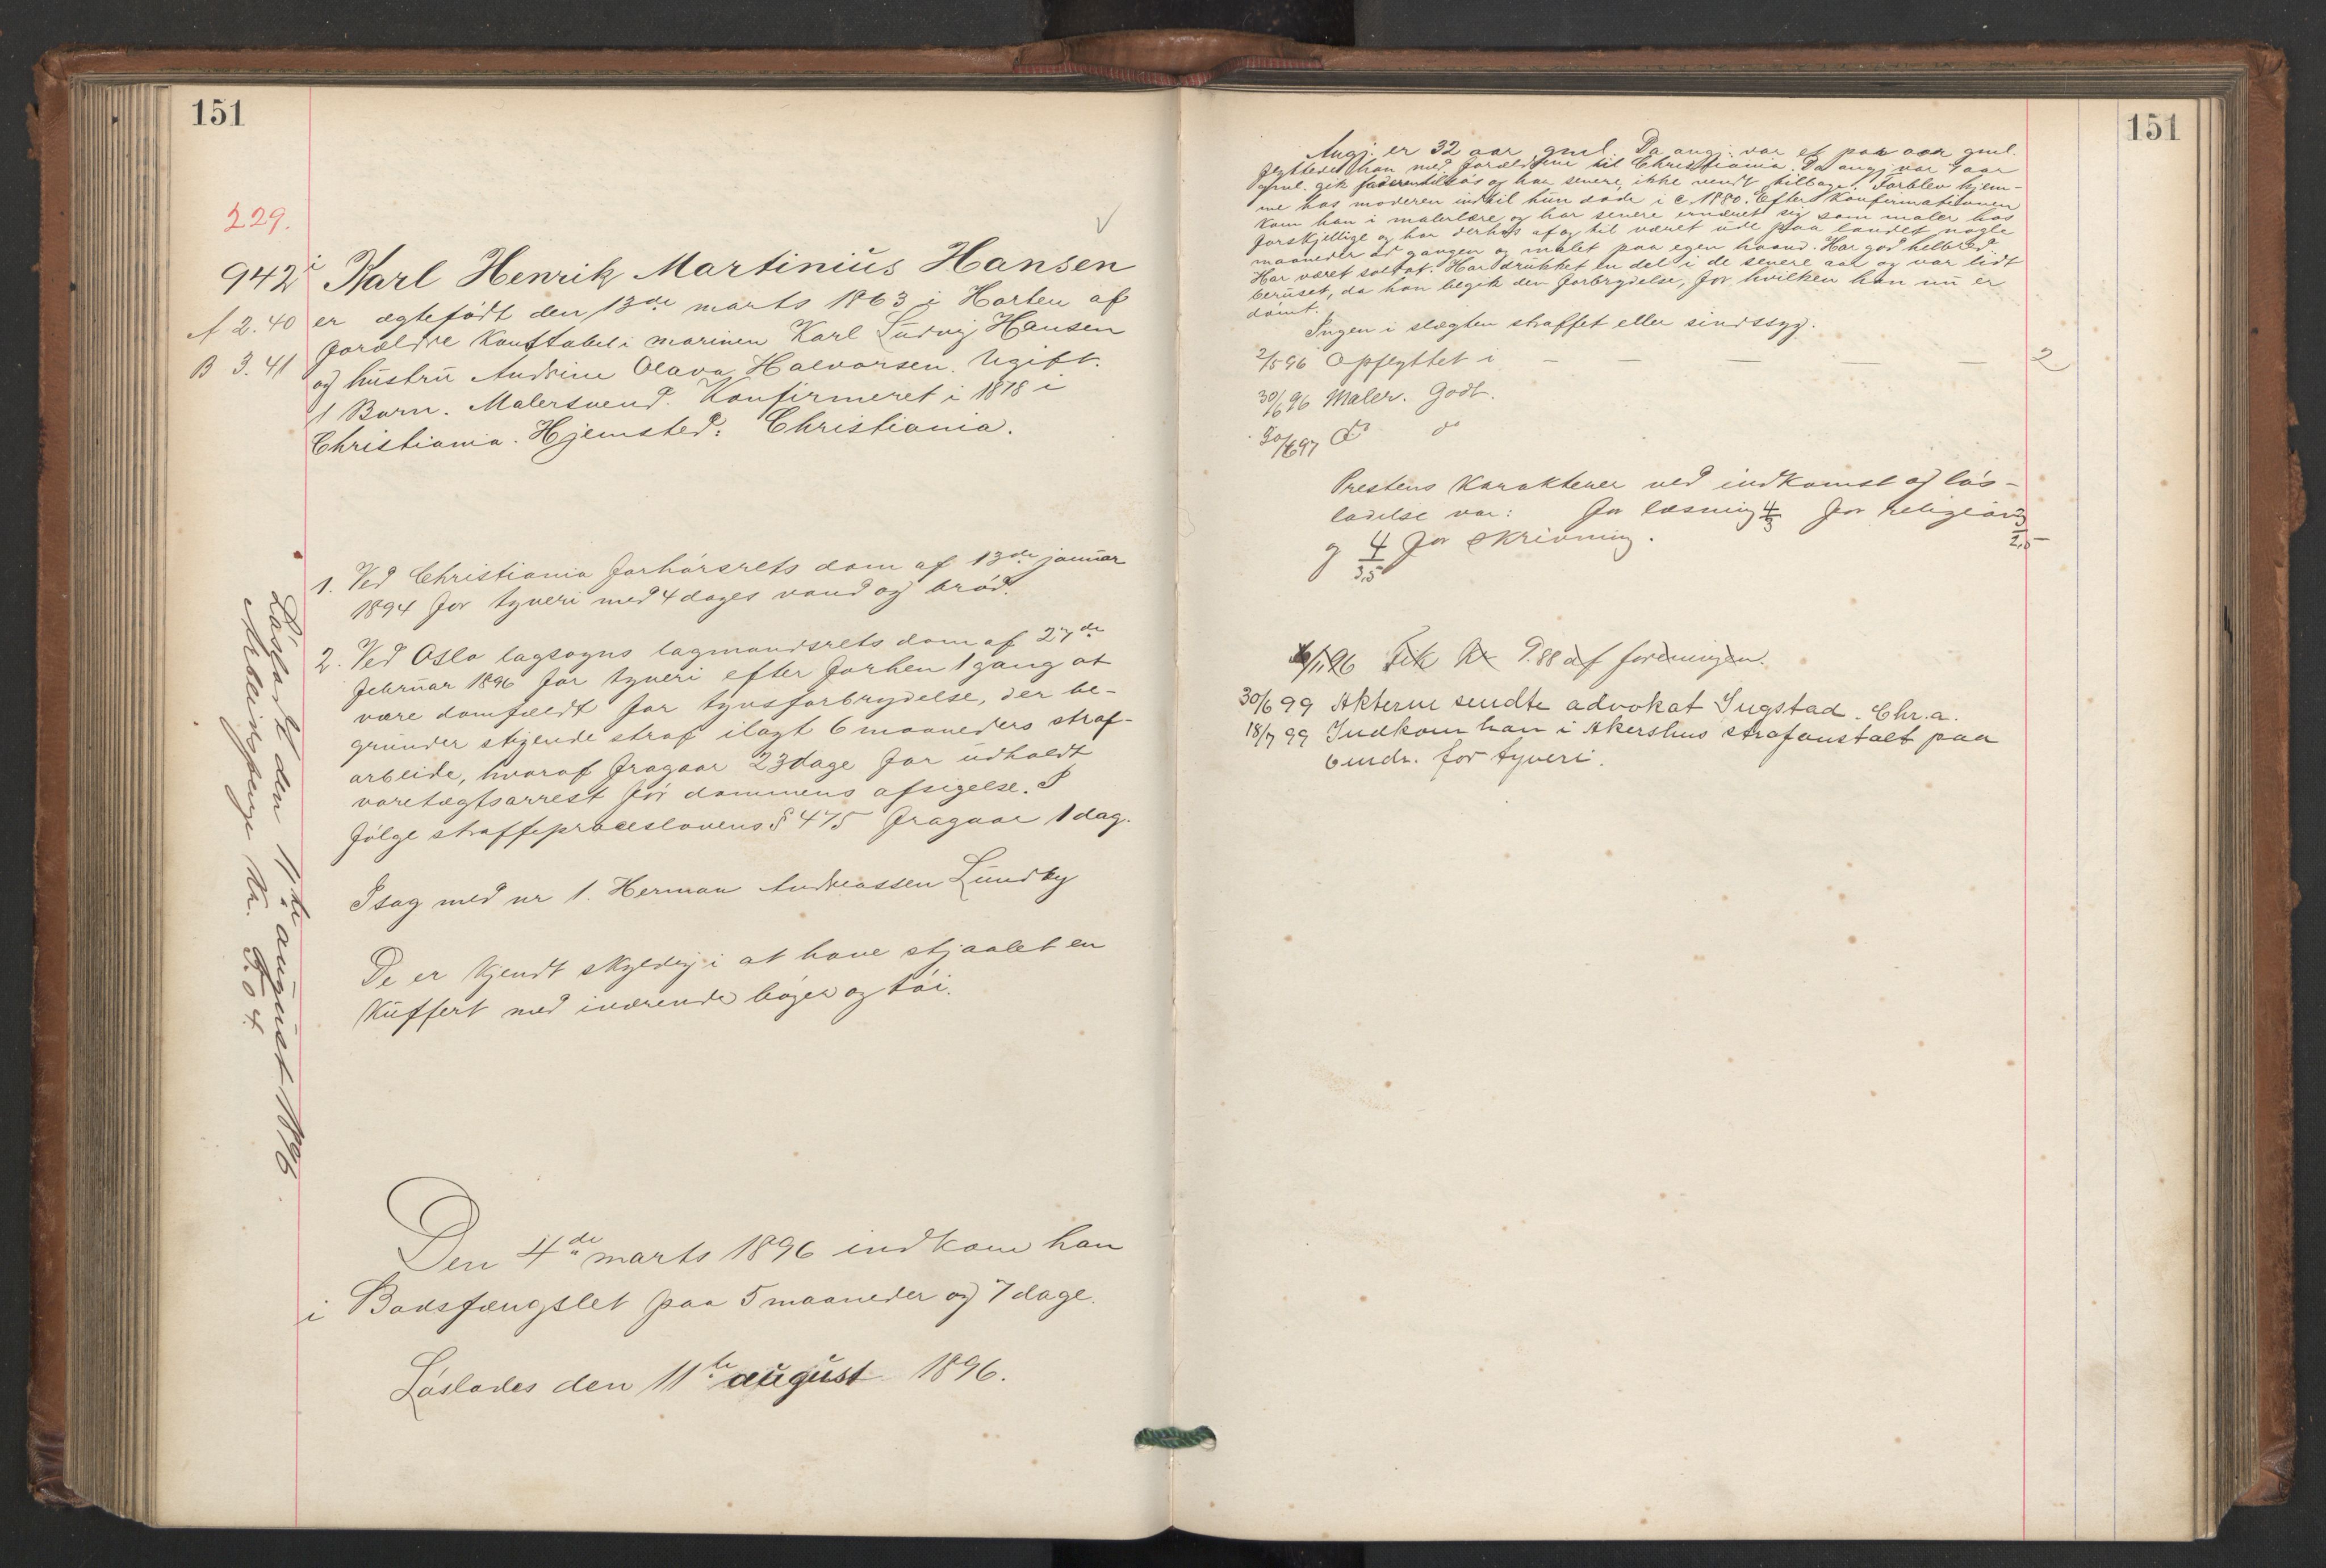 151
229.
942 i Karl Henrik Martinius Hansen
A 2.40 er ægtefödt den 13de marts 1863 i Horten af
B 3.41 forældre Konstabel i marinen Karl Ludvig Hansen
og hustru Andrine Olava Halvorsen. Ugift.
1 Barn. Malersvend. Konfirmeret i 1878 i
Christiania. Hjemsted: Christiania.
1. Ved Christiania forhörsrets dom af 13de januar
1894 for tyveri med 4 dages vand og bröd.
2. Ved Oslo lagsogns lagmandsrets dom af 27de
februar 1896 for tyveri efter forhen 1 gang at
være domfældt for tyvsforbrydelse, der be-
grunder stigende straf ilagt 6 maaneders straf-
arbeide, hvoraf fragaar 23 dage for udholdt
varetægtsarrest för dommens afsigelse. I
fölge straffeproceslovens § 475 fragaar 1 dag.
I sag med nr 1. Herman Andreassen Lundby
De er kjendt skyldig i at have stjaalet en
Kuffert med iværende böger og töi.
Den 4de marts 1896 indkom han
i Bodsfængslet paa 5 maaneder og 7 dage.
Löslades den 11te august 1896.
Lösladt den 11te august 1896.
Arbeidspenge Kr. 5.04.
151
Angj. er 32 aar gml. Da angj. var et par aar gml.
flyttede han med forældrene til Christiania. Da angj. var 4 aar
gml. gik faderen tilsös og har senere ikke vendt tilbage. Forblev hjem-
me hos moderen indtil hun döde i c. 1880. Efter Konfirmationen
kom han i malerlære og har senere ernæret sig som maler hos
forskjellige og har derhos af og til været ude paa landet nogle
maaneder ad gangen og malet paa egen haand. Har god helbred.
Har været soldat. Har drukket en del i de senere aar og var lidt
beruset, da han begik den forbrydelse, for hvilken han nu er
dömt.
Ingen i slægten straffet eller sindssyg.
2/5 96 Opflyttet i — — — — — 2
30/6 96 Maler. Godt.
30/6 97 Do do
Prestens Karakterer ved indkomst og lös-
ladelse var: for læsning 4/3 for religion 3/2,5
og 4/3,5 for skrivning.
/11 96 Fik Kr 9.88 af foreningen.
30/6 99 Akterne sendte advokat Ingstad. Chr.a.
18/7 99 Indkom han i Akershus strafanstalt paa
6 mdr. for tyveri.